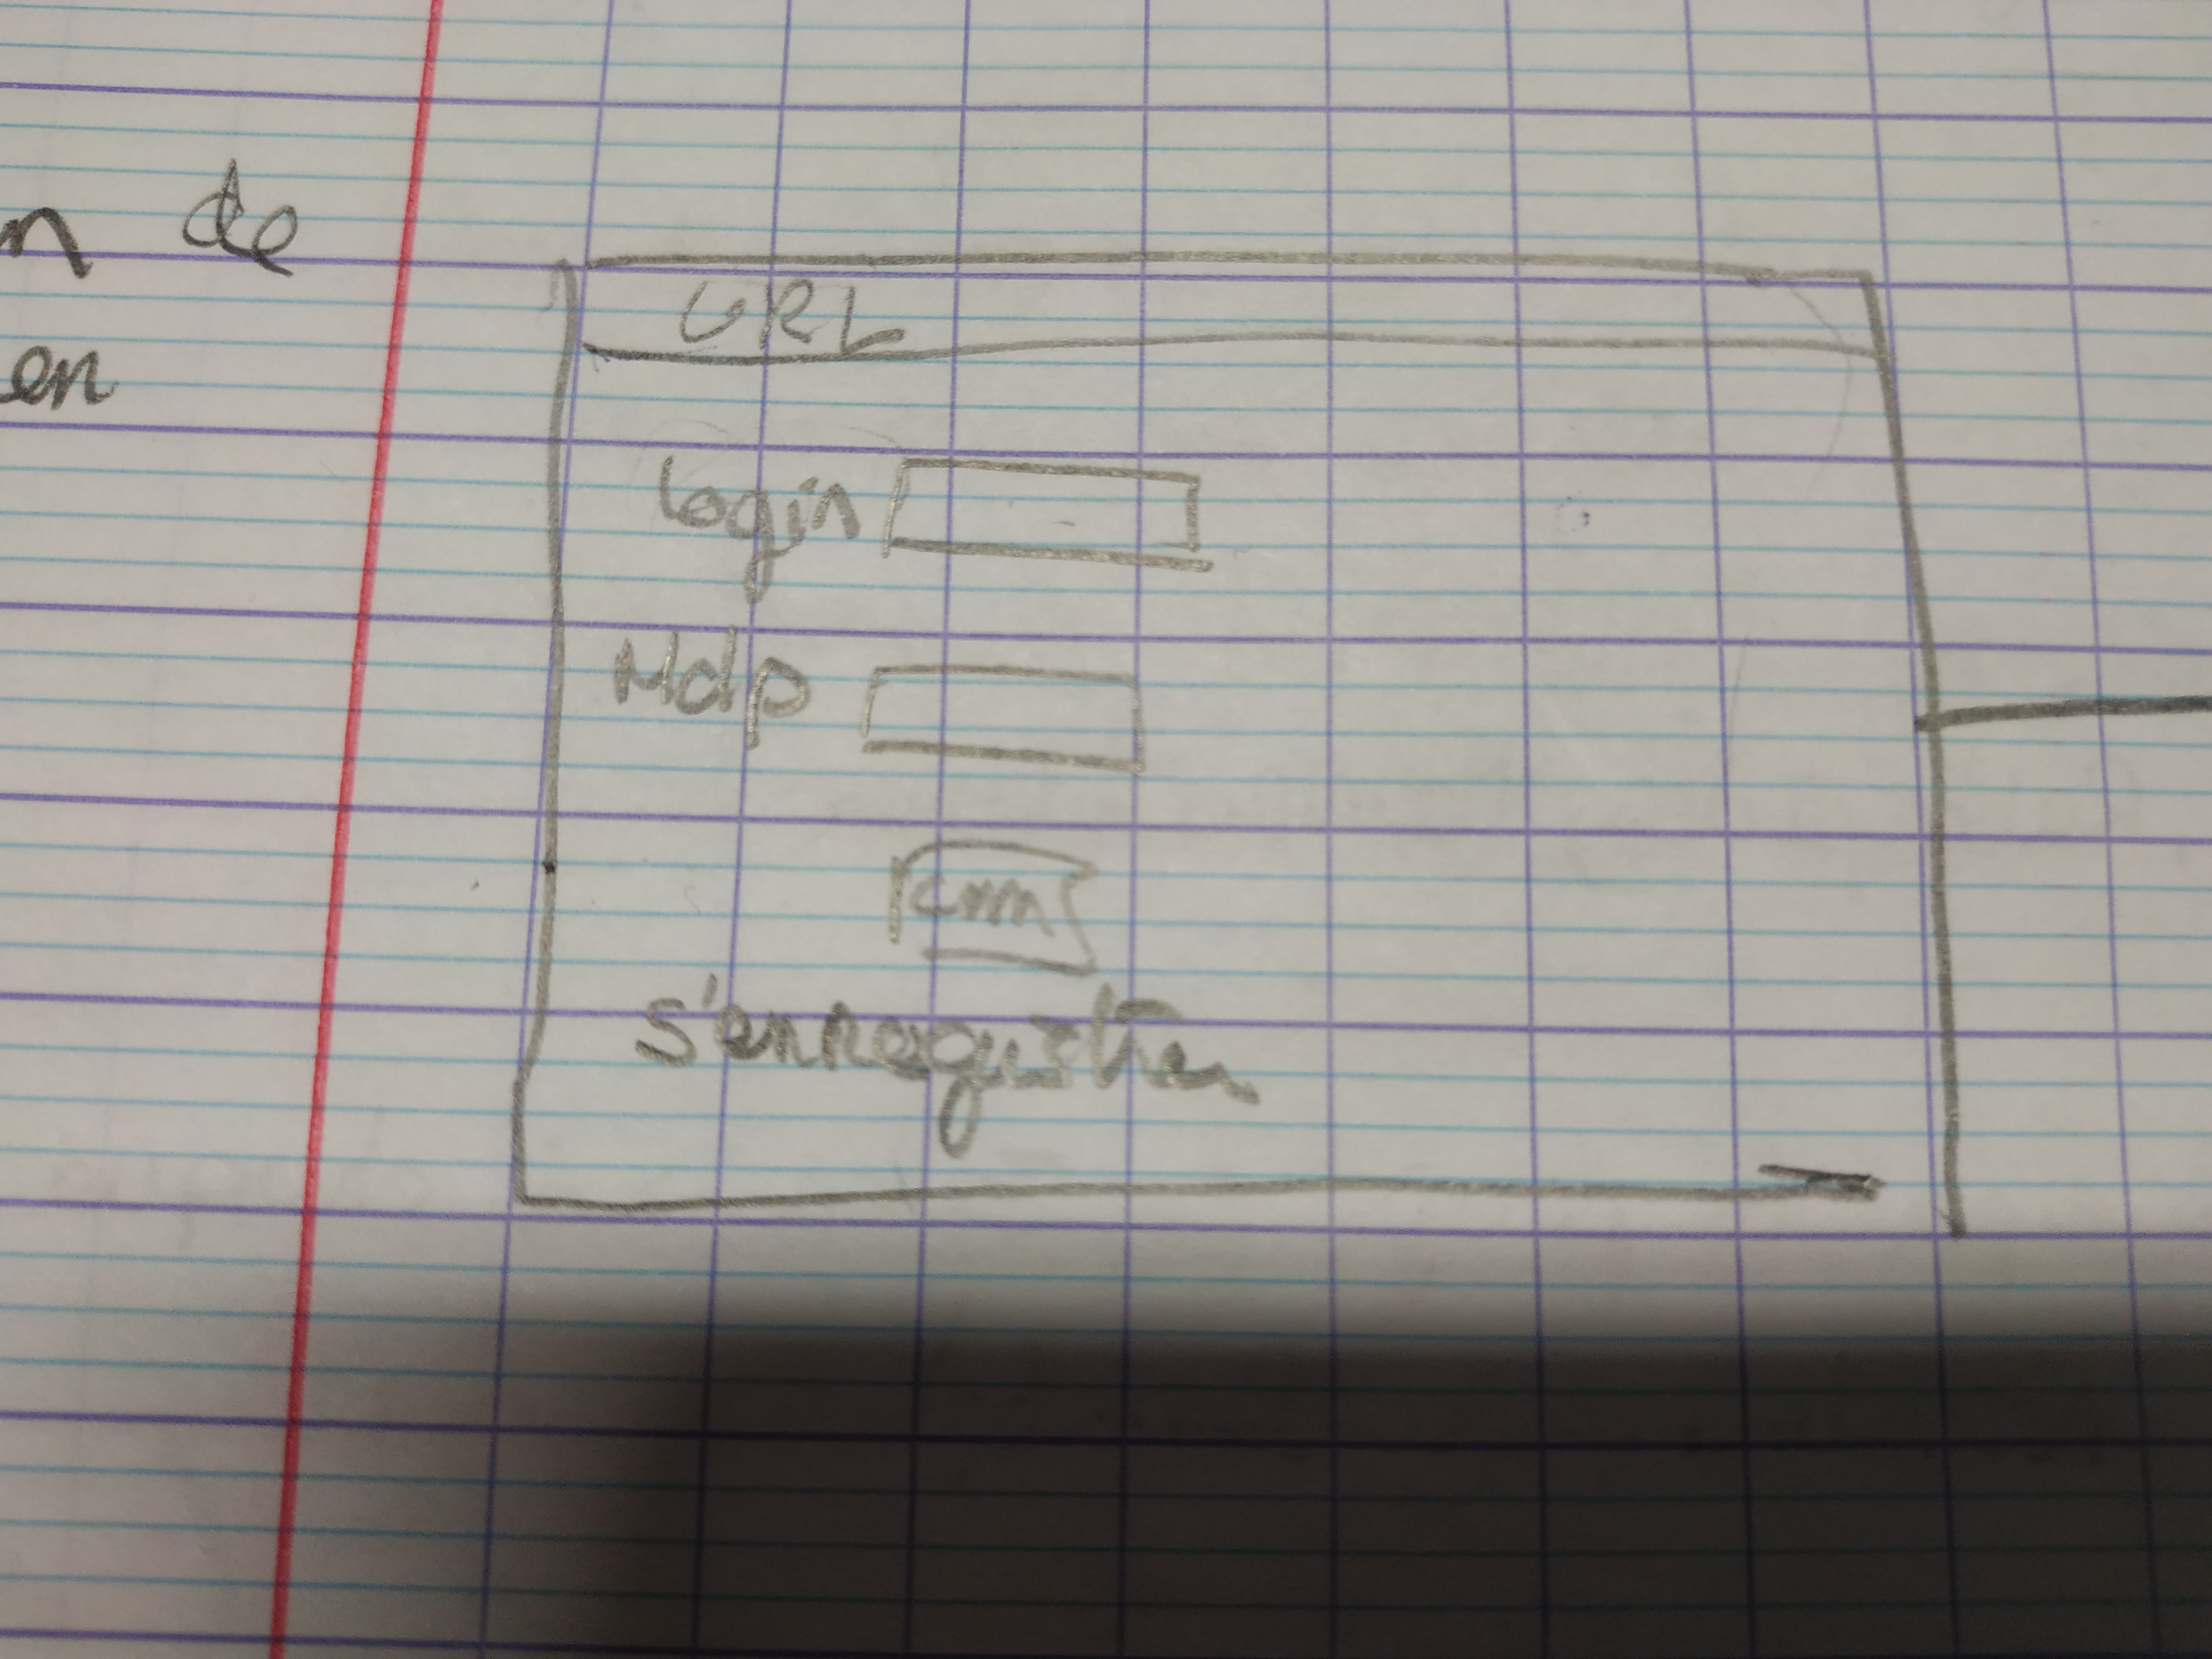 n de
on
URL
Login
Mdp
s'enregistrer